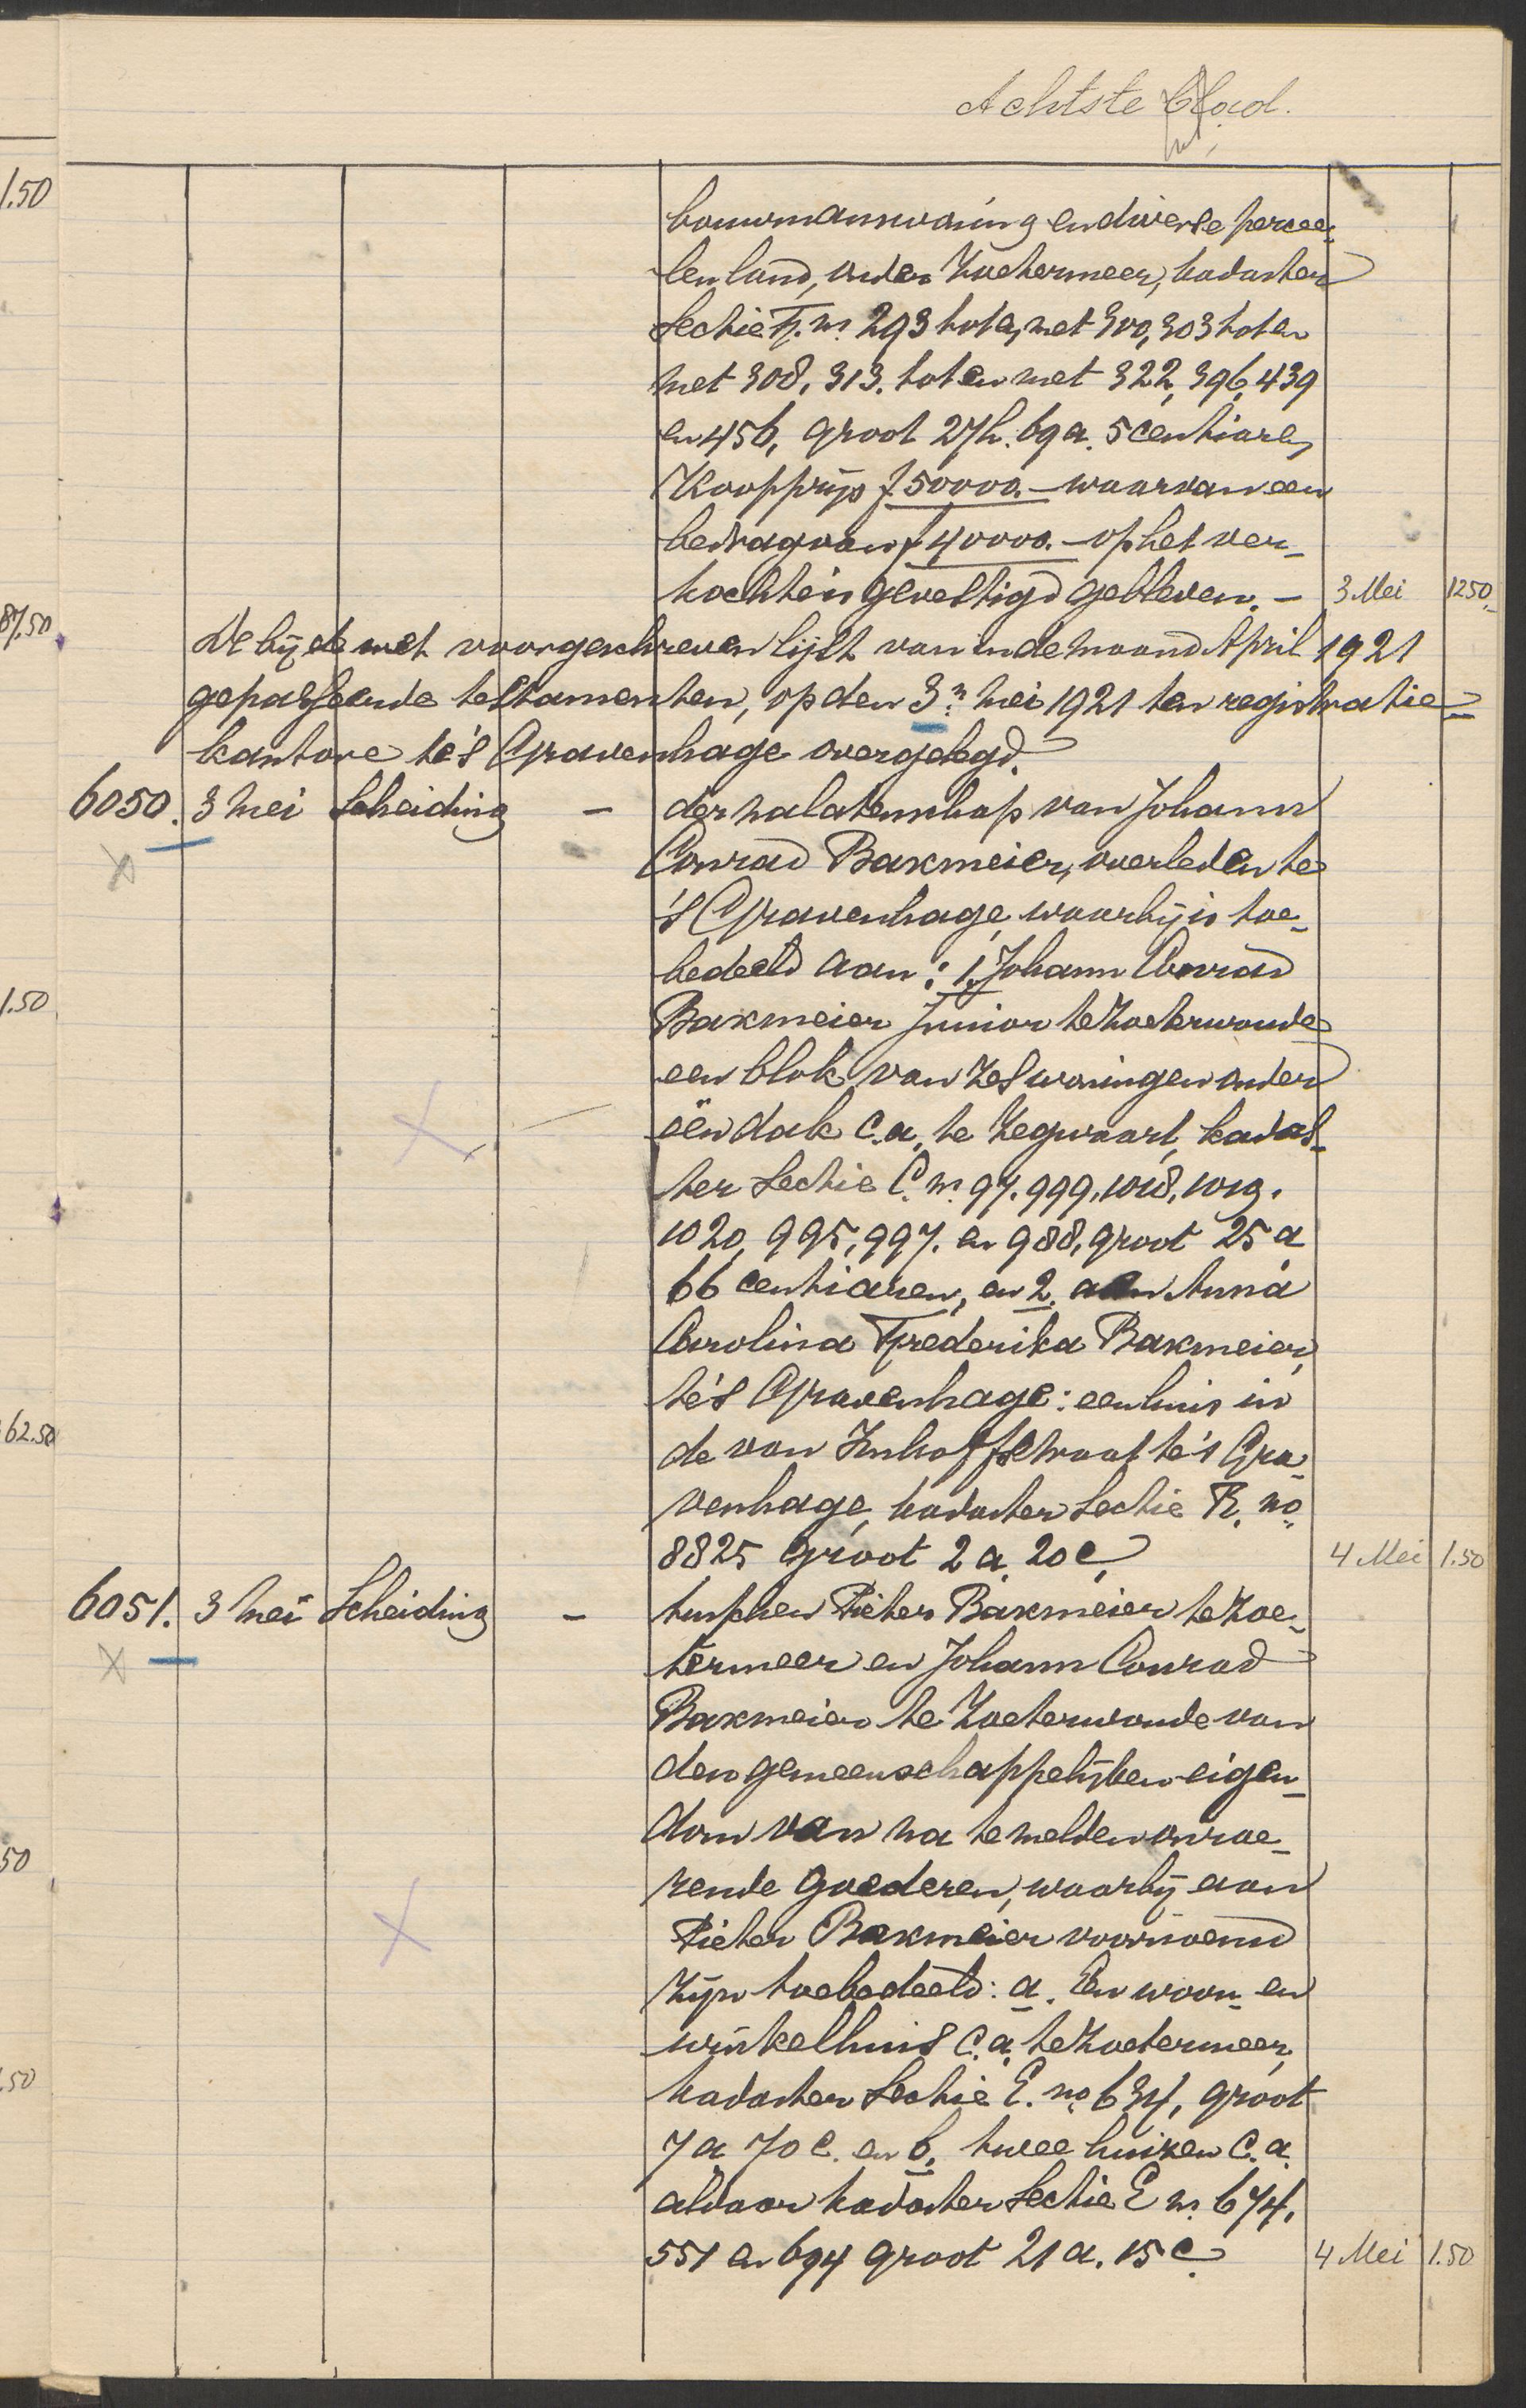 Achtste blad.
1.50
bouwmanswoning en diverse percee-
len land, onder Zoetermeer, kadaster
Sectie F. nr 293 tot en met 300, 303 tot en
met 308, 313. tot en met 322, 396, 439
en 456, groot 27 h. 69 a. 5 centiaren,
Koopprijs f 50000.- waarvan een
bedrag van f 40000.- op het ver-
kochte is gevestigd gebleven. - 3 Mei 1250.-
87.50
De bij de wet voorgeschreven lijst van in de maand April 1921
gepasseerde testamenten, op den 3n mei 1921 ten registratie-
kantore te 's Gravenhage overgelegd.
6050. 3 mei Scheiding - der nalatenschap van Johann
Conrad Baxmeier, overleden te
's Gravenhage, waarbij is toe-
bedeeld aan: 1. Johann Conrad
1.50
Baxmeier Junior te Zoeterwoude
een blok van zes woningen onder
één dak c.a. te Zegwaart, kadas-
ter Sectie C. nr 97. 999, 1018, 1019.
1020, 995, 997. en 988, groot 25 a
66 centiaren, en 2. aan Anna
Carolina Frederika Baxmeier,
te 's Gravenhage: een huis in
62.50
de van Imhoffstraat te 's Gra-
venhage, kadaster Sectie R. no
8825 groot 2 a. 20 c. 4 Mei 1.50
6051. 3 mei Scheiding - tusschen Pieter Baxmeier te Zoe-
termeer en Johann Conrad
Baxmeier te Zoeterwoude van
den gemeenschappelijken eigen-
dom van na te melden onroe-
50
rende goederen, waarbij aan
Pieter Baxmeier voornoemd
zijn toebedeeld: a. Een woon- en
winkelhuis c.a. te Zoetermeer,
.50
kadaster Sectie E. no 634, groot
7 a 70 c. en b. twee huizen c.a.
aldaar kadaster Sectie E nr 674.
551 en 694 groot 21 a. 15 c. 4 Mei 1.50